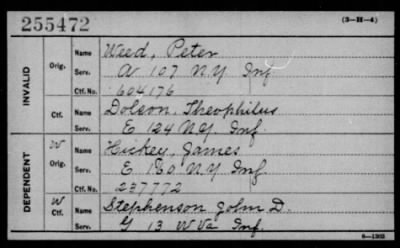 255472
(3-H-4)
INVALID
Orig.
Name Weed, Peter
Serv. A 107 N.Y. Inf.
Ctf. No. 604176
Ctf.
Name Dolson, Theophilus
Serv. E 124 N.Y. Inf.
DEPENDENT
W
Orig.
Name Hickey, James
Serv. E 160 N.Y. Inf.
Ctf. No. 237772
W
Ctf.
Name Stephenson John D.
Serv. G 13 W Va Inf.
6-1303